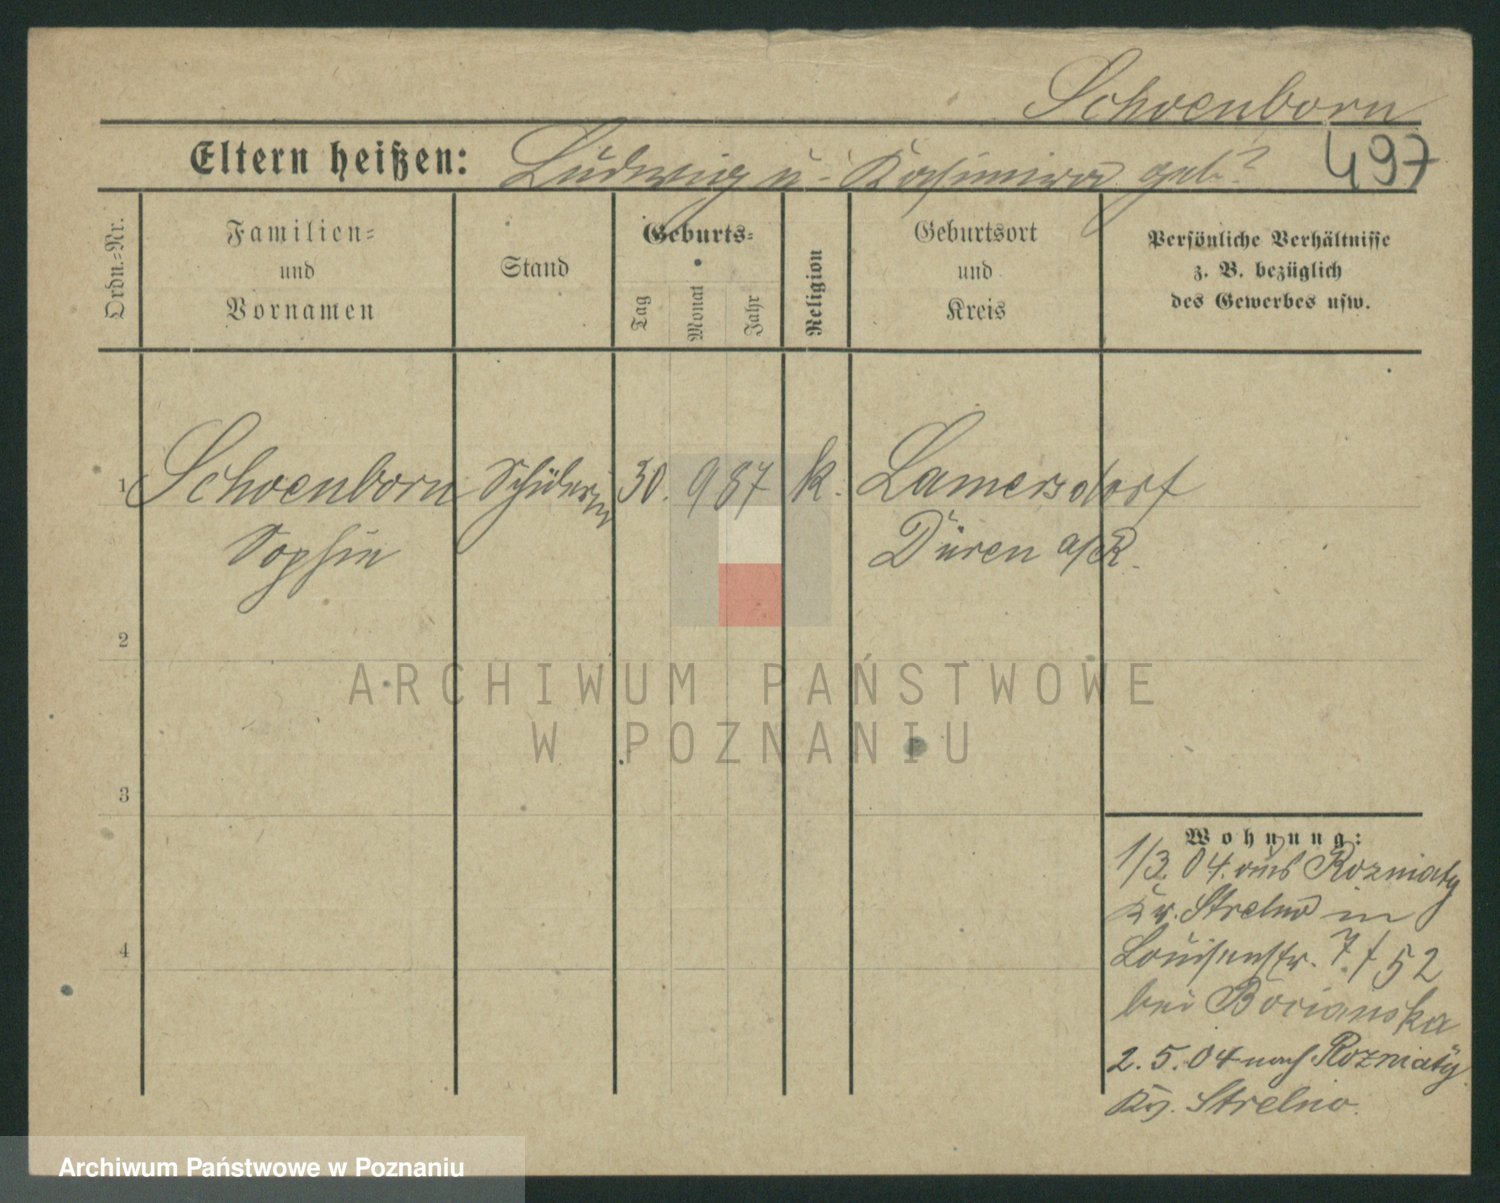 Schoenborn
Eltern heißen: Ludwig u. Kasimira geb.? 497
Ordn.-Nr.
Familien-
und
Vornamen
Stand
Geburts-
Tag
Monat
Jahr
Religion
Geburtsort
und
Kreis
Persönliche Verhältnisse
z. B. bezüglich
des Gewerbes usw.
1 Schoenborn Schülerin 30. 9 87 k. Lamersdorf
Sophie Düren a/R.
2
3
4
Wohnung:
1/3. 04. aus Rozniaty
Kr. Strelno in
Louisenstr. 7/52
bei Bocianska
2. 5. 04 nach Rozniaty
Kr. Strelno.
ARCHIWUM PAŃSTWOWE
W POZNANIU
Archiwum Państwowe w Poznaniu